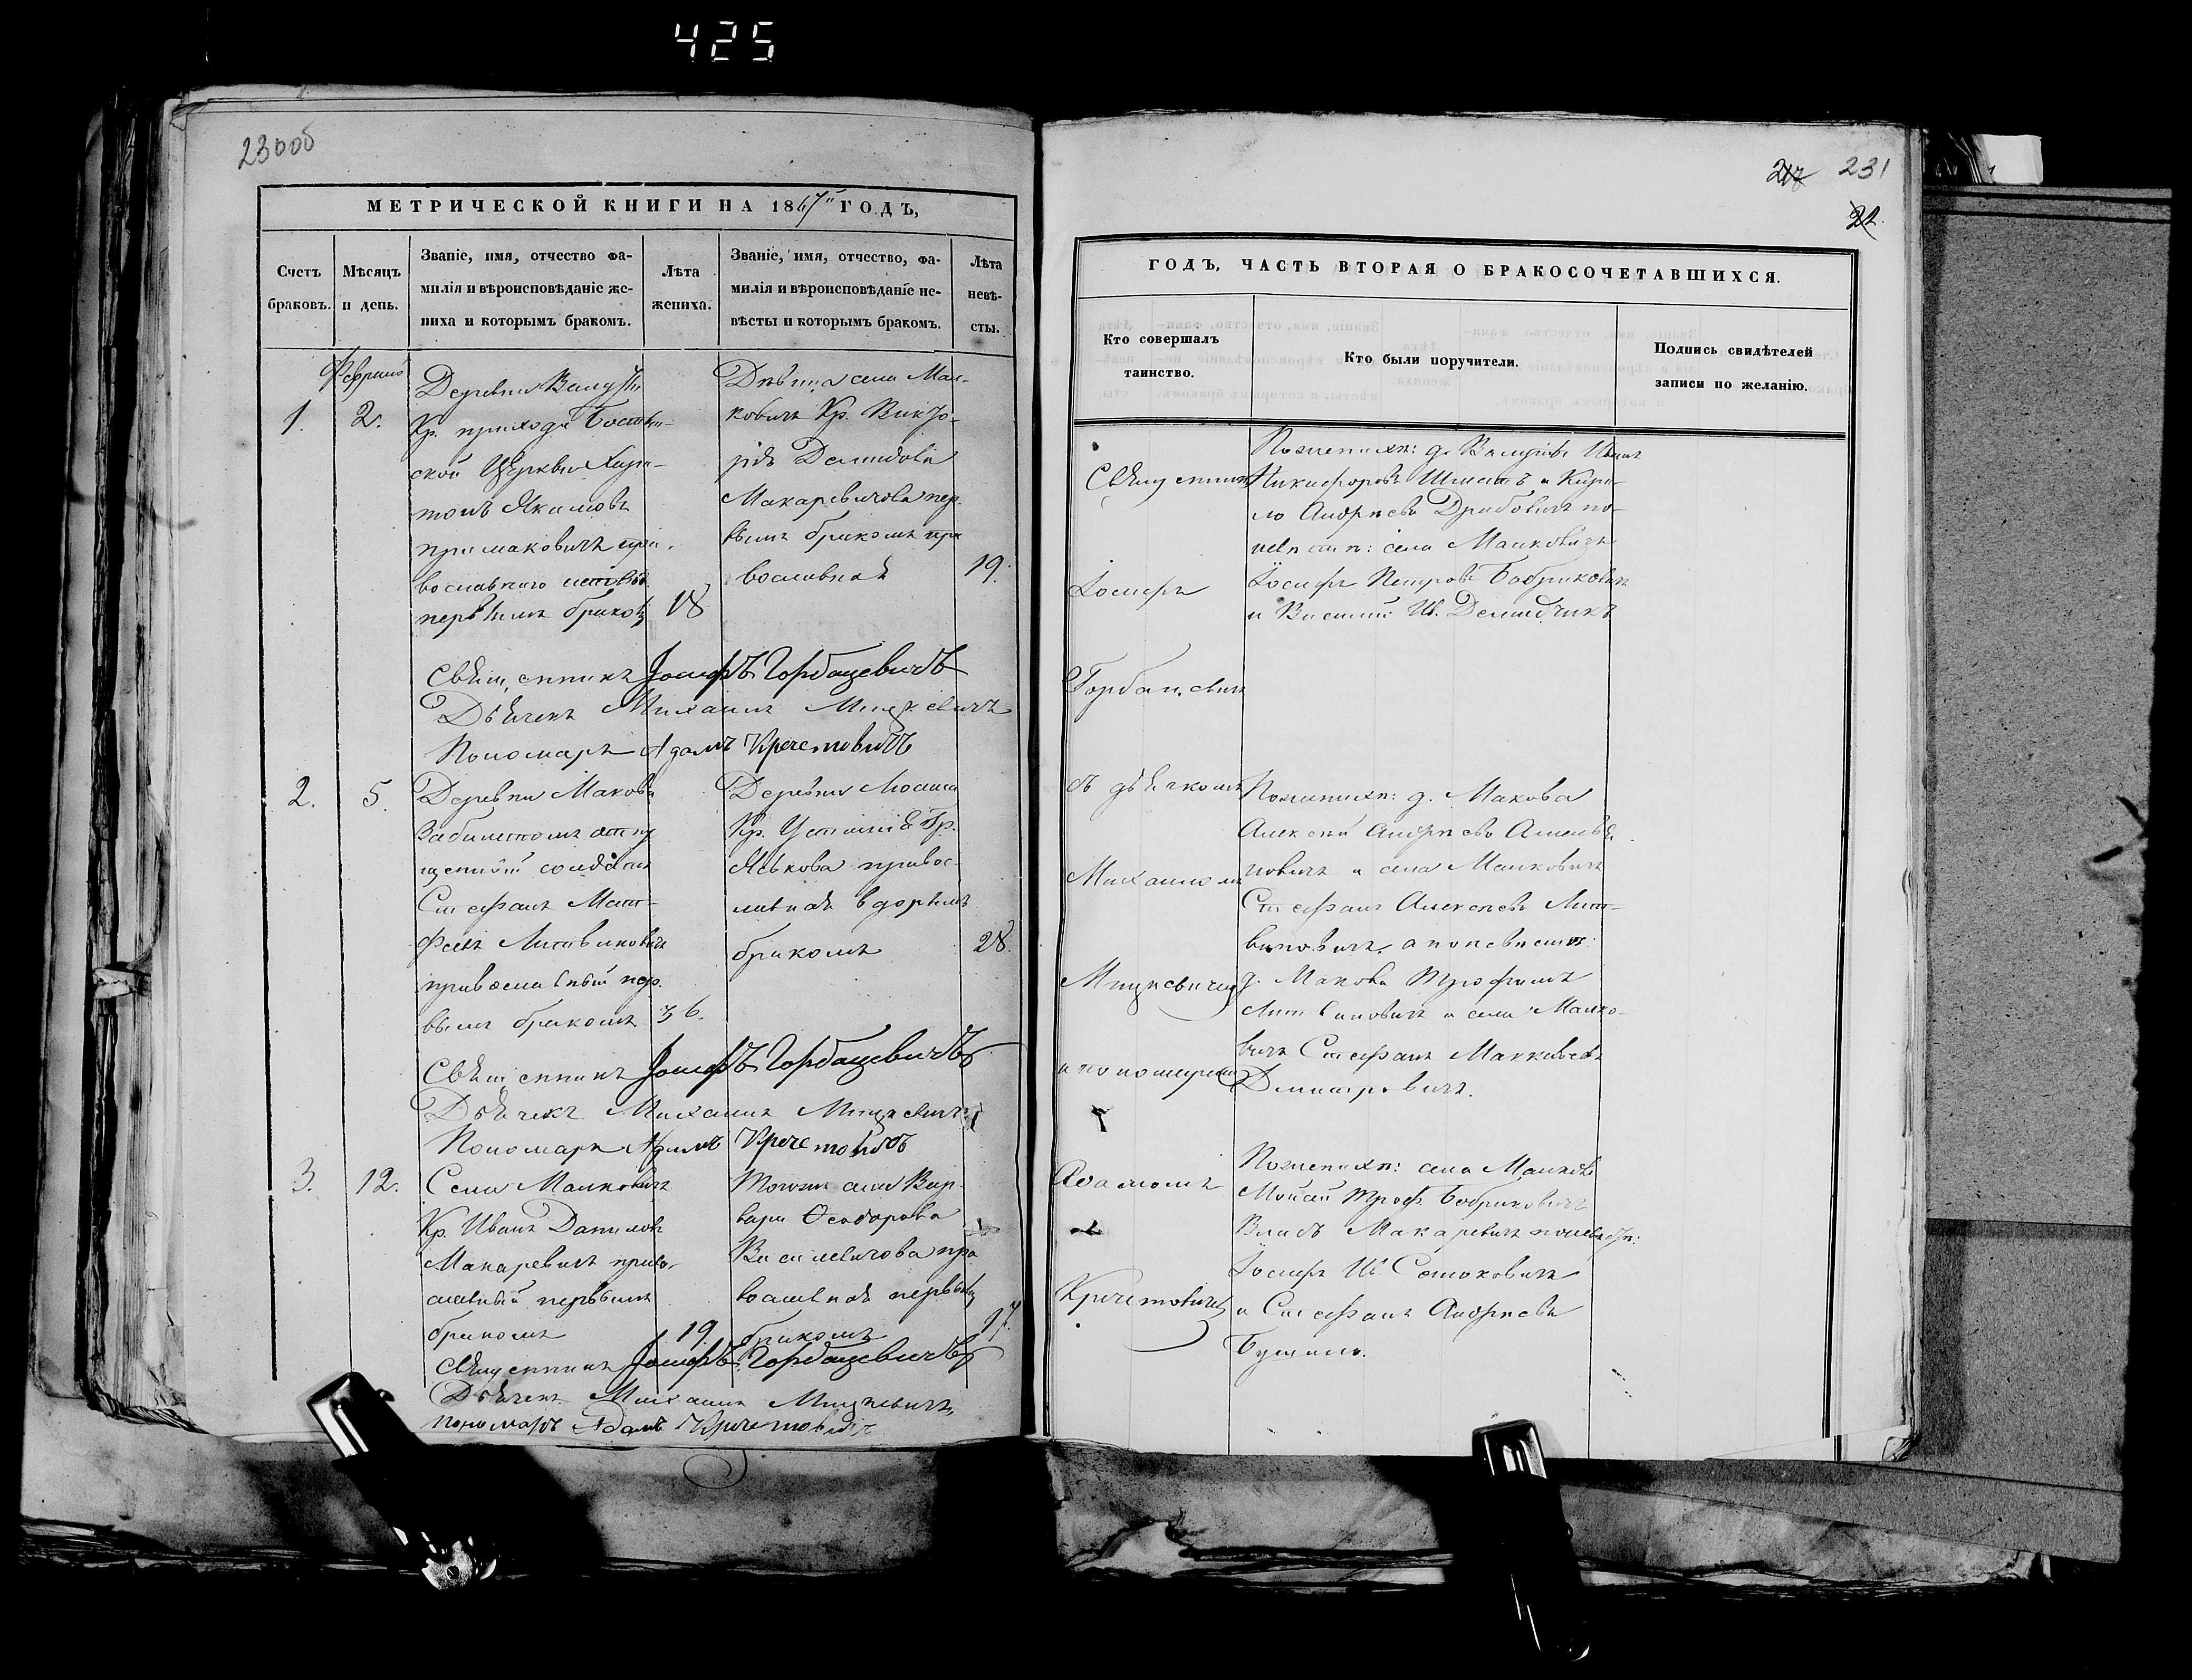 425
230об
МЕТРИЧЕСКОЙ КНИГИ НА 1867й ГОДЪ,
Счетъ браковъ.
Мѣсяцъ и день.
Званіе, имя, отчество фа-
милія и вѣроисповѣданіе же-
ниха и которымъ бракомъ.
Лѣта жениха.
Званіе, имя, отчество, фа-
милія и вѣроисповѣданіе не-
вѣсты и которымъ бракомъ.
Лѣта невѣ-
сты.
1.
2.
Деревни
Кр. прихода
ской Церкви Хари-
тонъ Якимовъ
Примаковичъ пра-
вославнаго
первымъ бракомъ
18
Дѣвица села Мал-
ковичъ Кр. Викто-
рія Демидова
Макаревичова пер-
вымъ бракомъ пра
вославная
19.
Священникъ Іосифъ Горбацевичъ
Дьячекъ Михаилъ Мицкевичъ
Пономарь Адамъ Кречетовичъ
2.
5.
Деревни Макова
Забилетомъ отпу
щенной солдатъ
Стефанъ Мат-
феевъ Литвиновичъ
православный пер-
вымъ бракомъ
36.
Деревни
Кр. Устинія Гр.
Яськова правос-
лавная вторымъ
бракомъ
28.
Священникъ Іосифъ Горбацевичъ
Дьячекъ Михаилъ Мицкевичъ
Пономарь Адамъ Кречетовичъ
3.
12.
Села Малковичъ
Кр. Иванъ Даниловъ
Макаревичъ право-
славный первымъ
бракомъ
19.
Тогожъ села Вар-
вара Ѳеодорова
Василевичова пра
вославная первымъ
бракомъ
17.
Священникъ Іосифъ Горбацевичъ
Дьячекъ Михаилъ Мицкевичъ,
пономарь Адамъ Кречетовичъ
231
22.
ГОДЪ, ЧАСТЬ ВТОРАЯ О БРАКОСОЧЕТАВШИХСЯ.
Кто совершалъ
таинство.
Кто были поручители.
Подпись свидѣтелей
записи по желанію.
Священникъ
Іосифъ
Горбацевичъ
съ дьячкомъ
Михаиломъ
Мицкевичемъ
и пономаремъ
Адамомъ
Кречетовичемъ
Поженихѣ: д. Иванъ
Никифоровъ Шматъ и Кири-
ло Андреевъ Дробовичъ по-
невѣстѣ: села Малковичъ
Іосифъ Петровъ Бобриковичъ
и Василій Ив. Демидчикъ
Поженихѣ: д. Макова
Алексѣй Андреевъ
новичъ и села Малковичъ
Стефанъ Алексѣевъ Лит-
виновичъ, а поневѣстѣ:
д. Макова Трофимъ
Литвиновичъ и села Малко-
вичъ Стефанъ
Дмитровичъ.
Поженихѣ: села Малковичъ
Мойсей Троф. Бобриковичъ
Макаревичъ поневѣстѣ:
Іосифъ Ив.
и Стефанъ Андреевъ